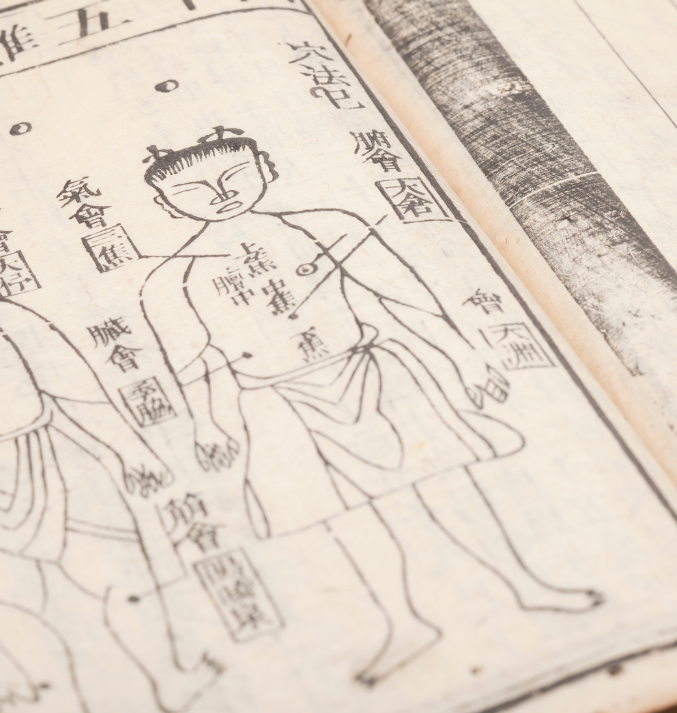 五難
穴法
腑會
太倉
氣會
三焦
會
大杼
上焦
膻中
中焦
焦
臟會
季脇
會
筋會
陽陵泉